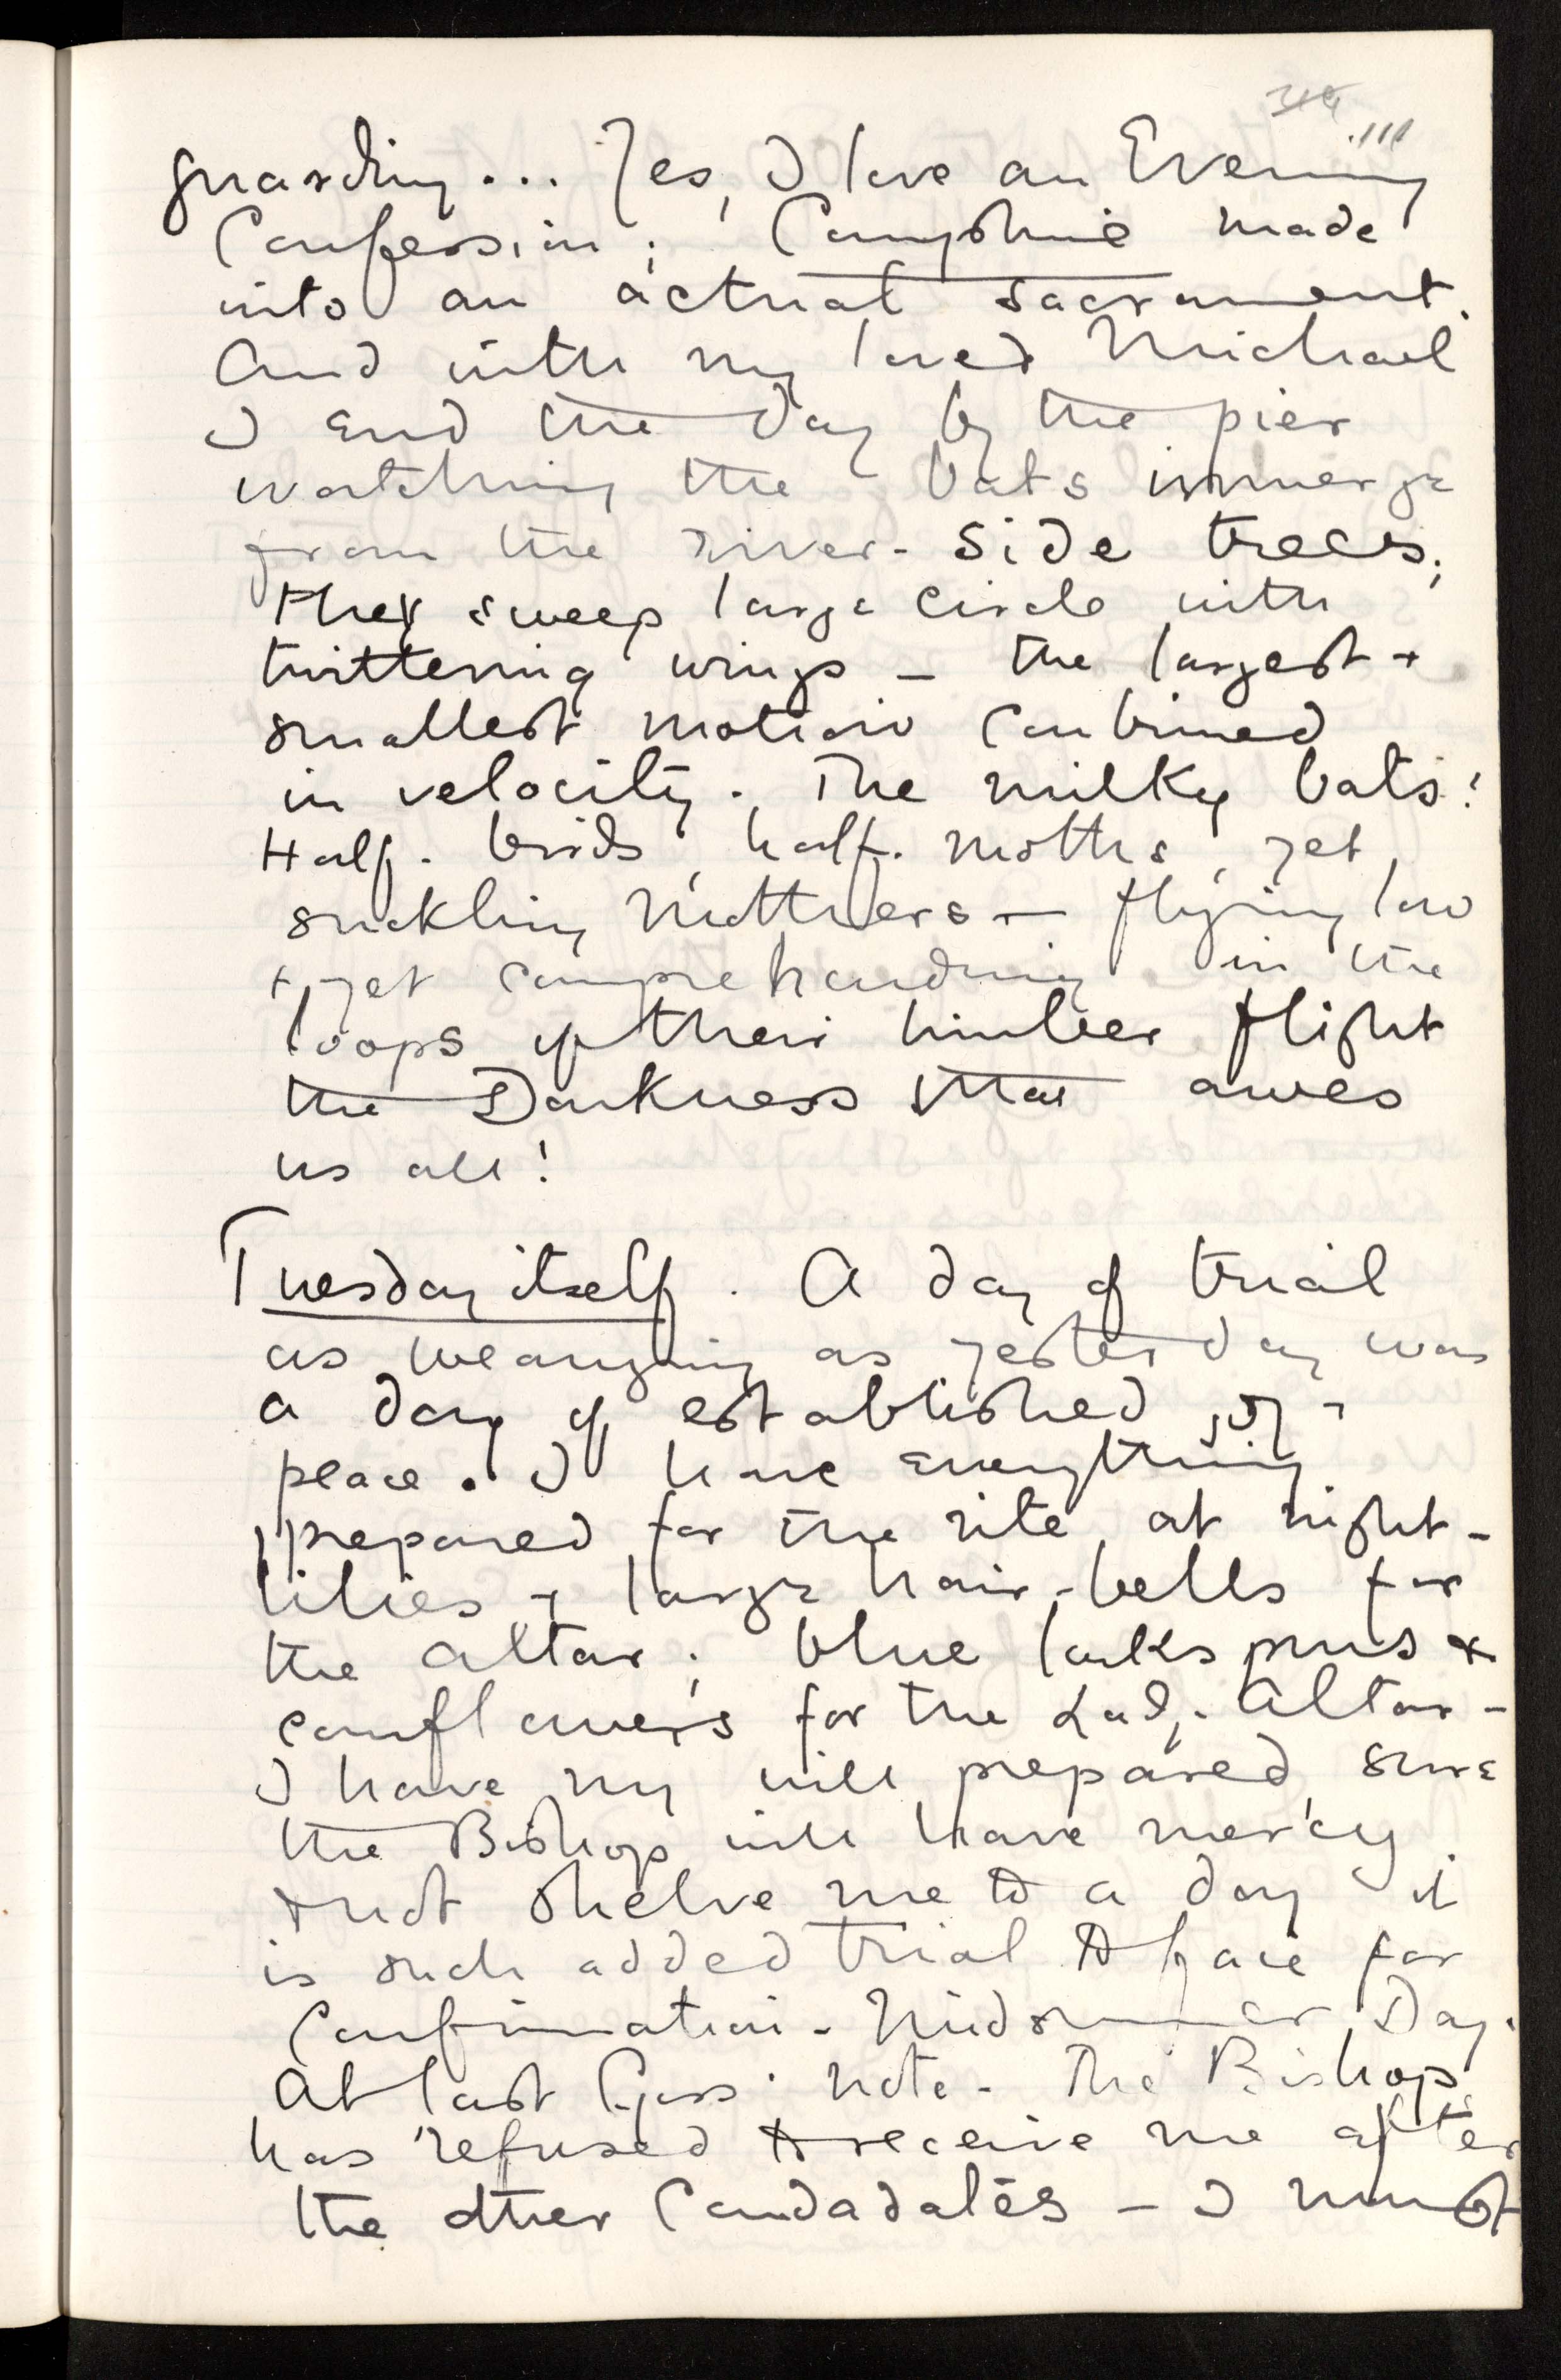 314
111
guarding... Yes, I love an Evening
Confession; Complinė made
into an actual sacrament.
And with my loved Michael
I end the day by the pier
watching the bats immerge
from the river-side trees;
they sweep large circle with
twittering wings – the largest +
smallest motion combined
in velocity. The milky bats!
Half-birds, half-moths, yet
suckling Mothers – flying low
+ yet comprehending in the
loops of their limber flight
the Darkness that awes
us all!
Tuesday itself. A day of trial
as wearying as yesterday was
a day of established joy –
peace. I have everything
prepared for the rite at night –
lilies + large hair-bells for
the altar; blue larkspurs &
cornflowers for the Lady-Altar –
I have my will prepared, sure
the Bishop will have mercy
& not shelve me to a day it
is such added trial to face for
Confirmation – Midsummer Day.
At last note – The Bishop
has refused to receive me after
the other Candadates – I must